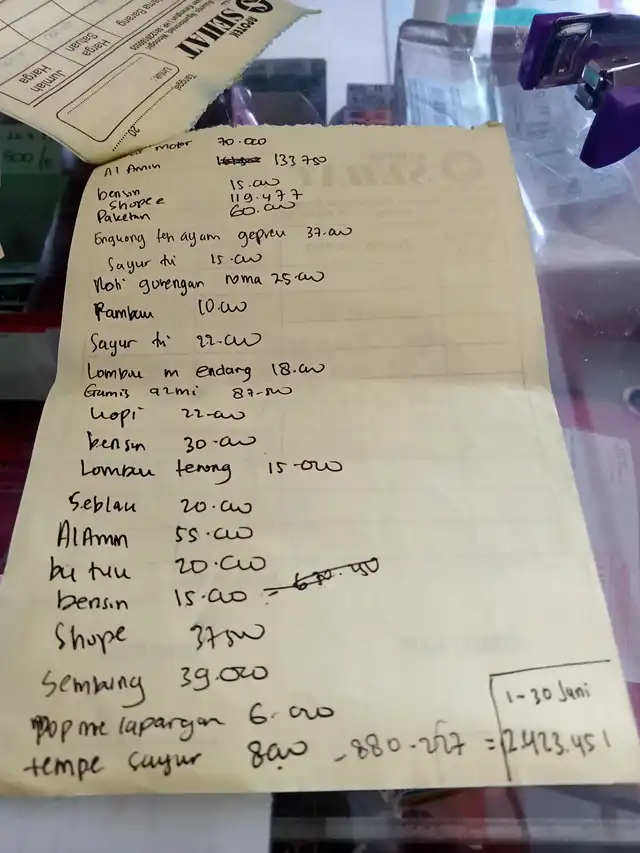 APOTEK
SEHAT
Nama Barang
Harga Satuan
Jumlah Harga
Tanggal
Untuk:
20
motor 70.000
Al Amin 133 750
bensin 15.000
Shopee 119.477
Paketan 60.000
teh ayam gepreu 37.000
Sayur tu 15.000
Roti gorengan roma 25.000
Rambu 10.000
Sayur tu 22.000
Lombu m endang 18.000
Gamis azmi 87.500
kopi 22.000
bensin 30.000
Lombu terong 15.000
Seblau 20.000
Al Amin 55.000
bu tuu 20.000
bensin 15.000 =
Shope 37500
Sembung 39.000
pop me lapangan 6.000
tempe sayur 8000 - 880.227 = 2.423.451
1-30 Juni